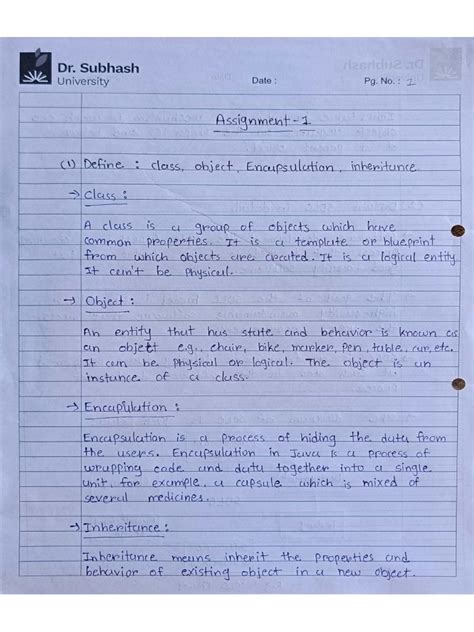 Dr. Subhash
University
Date :
Pg. No. : 1
Assignment - 1
(1) Define : class, object, Encapsulation, inheritance.
→ Class :
A class is a group of objects which have
common properties. It is a template or blueprint
from which objects are created. It is a logical entity
It can't be Physical.
→ Object :
An entity that has state and behavior is known as
an object e.g., chair, bike, marker, pen, table, car, etc.
It can be Physical or logical. The object is an
instance of a class.
→ Encapulation :
Encapsulation is a process of hiding the data from
the users. Encapsulation in Java is a process of
wrapping code and data together into a single
unit, for example, a capsule which is mixed of
several medicines.
→ Inheritance :
Inheritance means inherit the properties and
behavior of existing object in a new object.